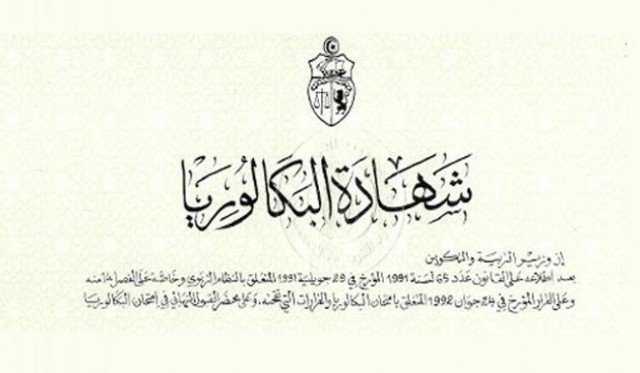 شَهَادَة البَكَالُورِيَا
إن وزير التربية والتكوين
بعد اطلاعه على القانون عدد 65 لسنة 1991 المؤرخ في 29 جويلية 1991 المتعلق بالنظام التربوي وخاصة على الفصل 18 منه
وعلى القرار المؤرخ في 24 جوان 1992 المتعلق بامتحان البكالوريا والقرارات التي نقحته، وعلى محضر القبول النهائي في امتحان البكالوريا